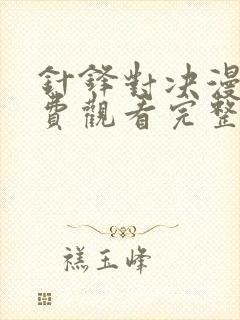 針鋒對決漫
費觀看完整
禚玉峰